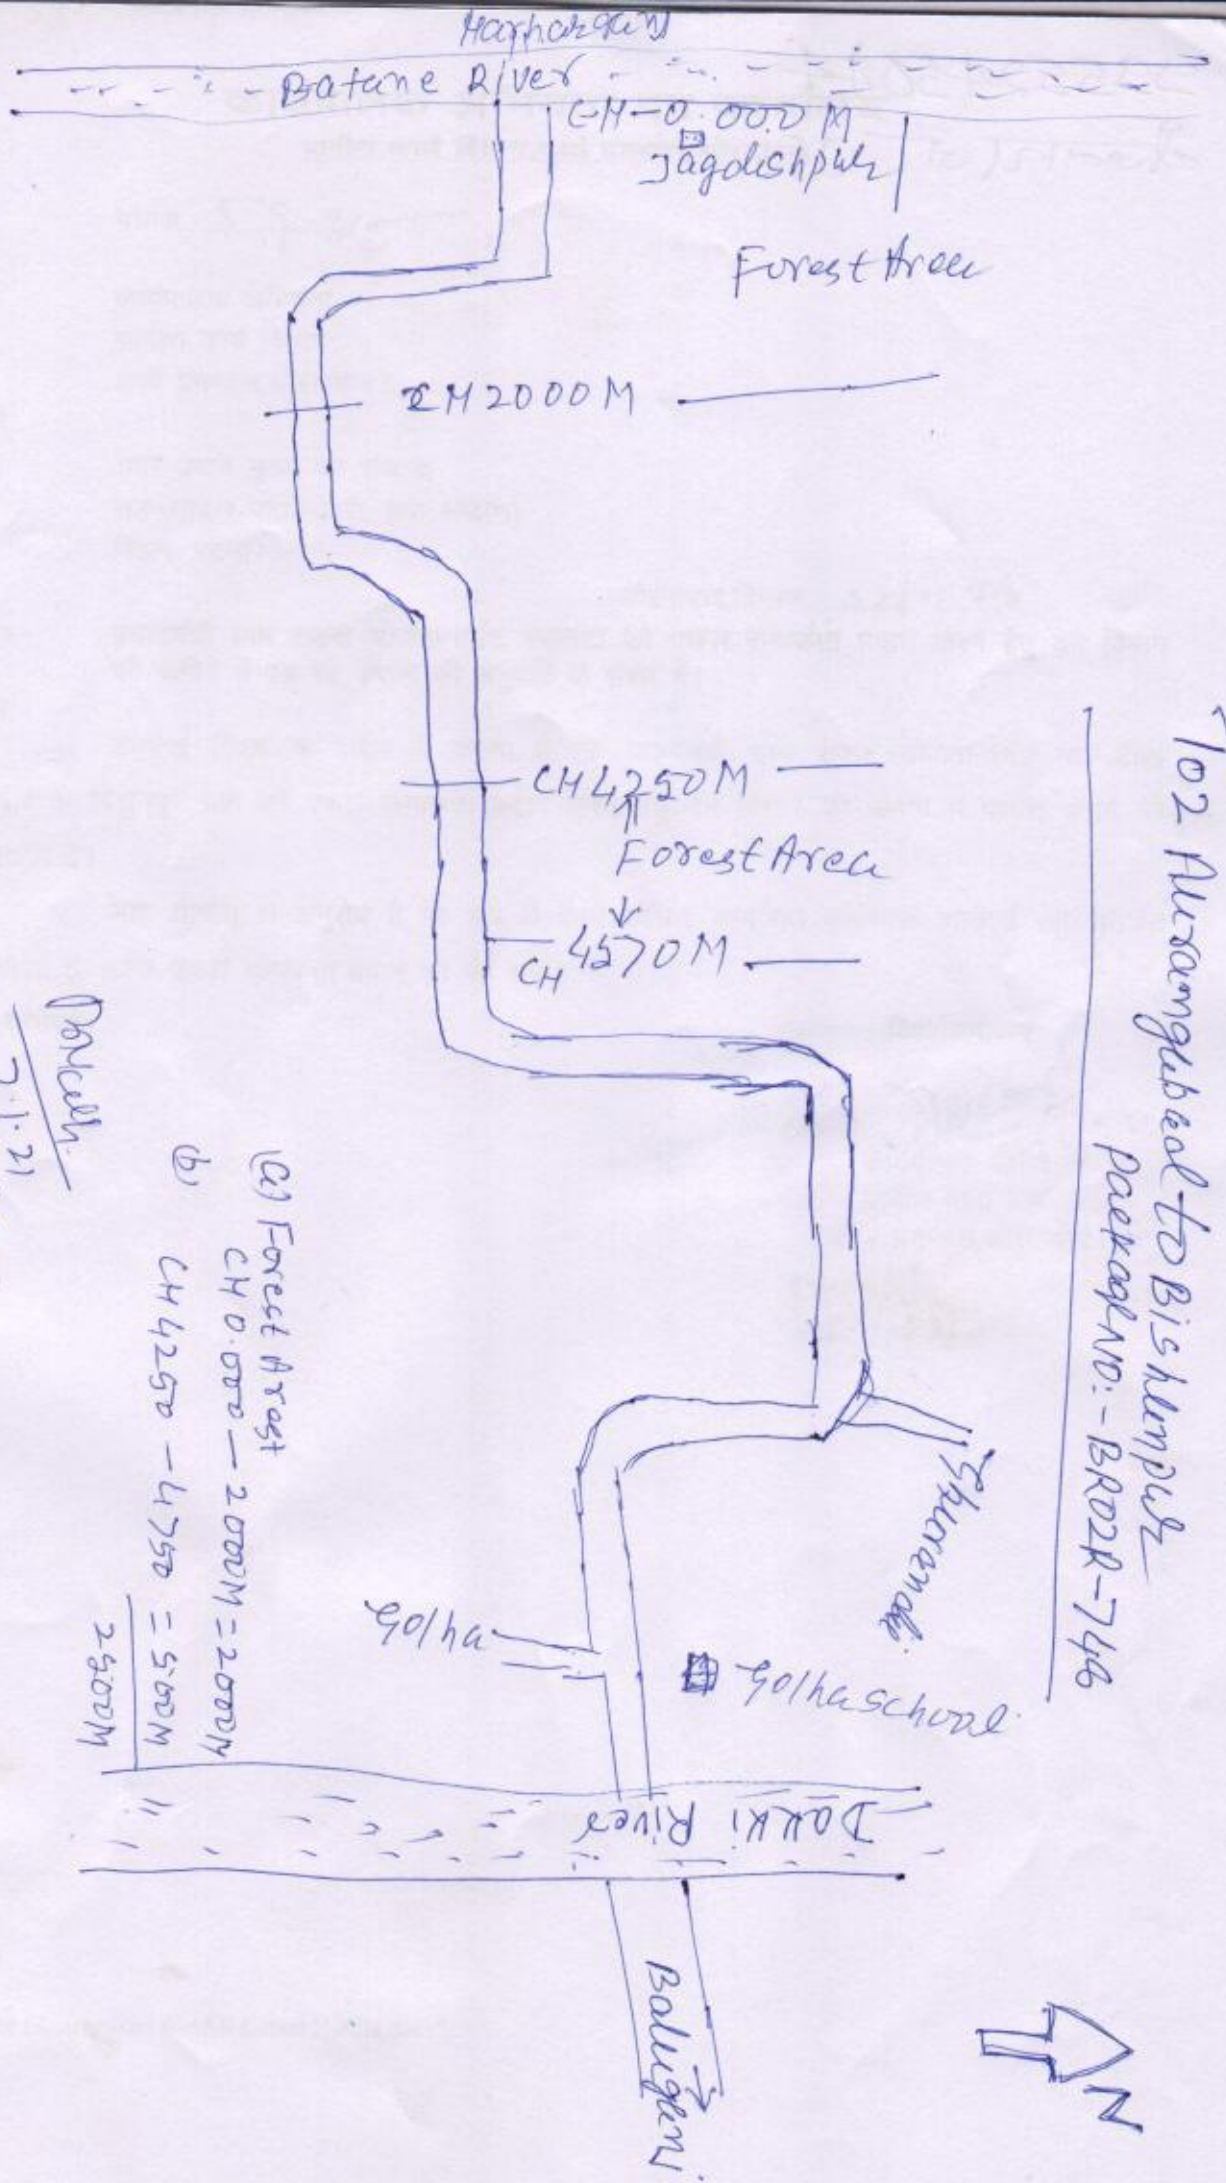 Hariharganj
Batane River
CH-0.000 M
Jagdishpur
Forest Area
CH 2000 M
CH 4250 M
Forest Area
CH 4570 M
T02 Aurangabad to Bishunpur
Package No:- BR02R-746
Golha
Golha School
Dakki River
Baluganj
N
(a) Forest Arest
CH 0.000 - 2000M = 2000M
(b) CH 4250 - 4750 = 500M
2500M
7.1.21